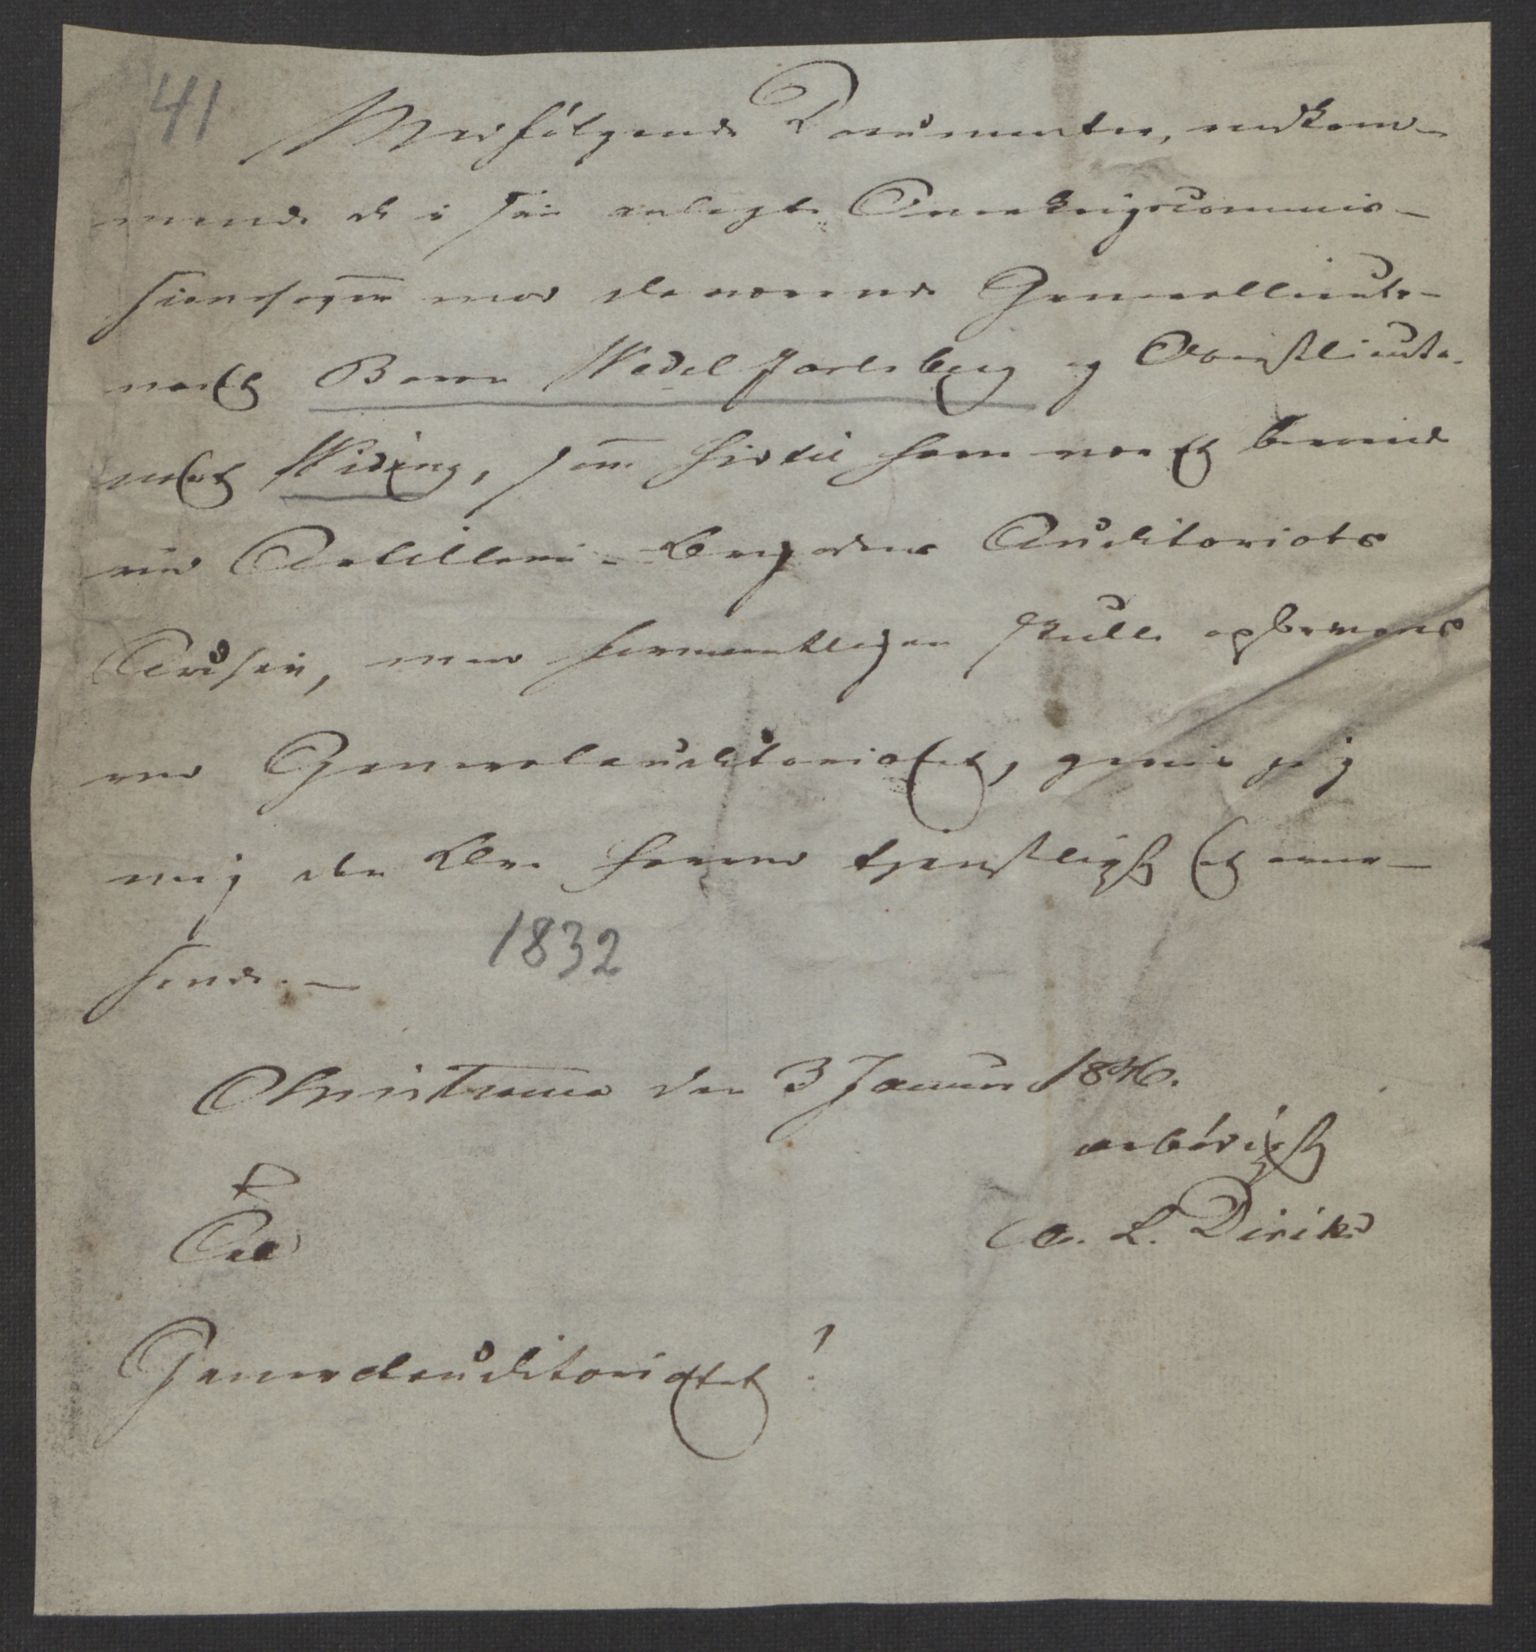 41
Medfølgende Documenter, vedkom-
mende de i sin anlagte Overkrigscommis-
sionssager mod daværende Generallieute-
nant Baron Wedel Jarlsberg og Oberstlieute-
nant Widing, som hidtil have været bevarede
ved Artilleri-Brigadens Auditoriats
Archiv, men formentligen skulle opbevares
ved Generalauditoriatet, giver jeg
mig den Ære herved tjenstligst at over-
sende. -
1832
Christiania den 3 Januar 1846.
ærbødigst
C. L. Diriks
Til
Generalauditoriatet!